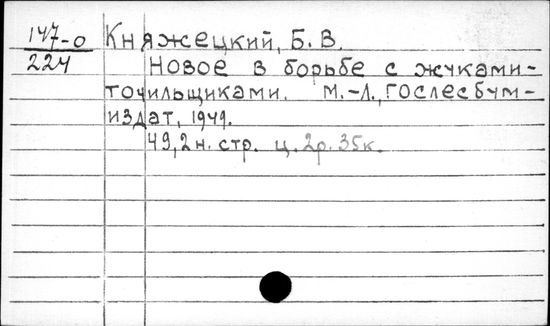 147-0 Княжецкий, Б. В.
224 Новое в борьбе с жуками-
точильщиками. М.-Л., Гослесбум-
издат, 1949.
49, 2 н. стр. ц. 2р. 35к.